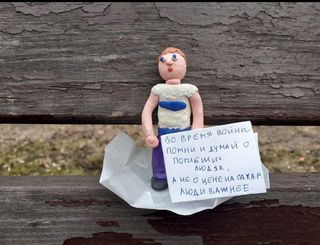 ВО ВРЕМЯ ВОЙНЫ
ПОМНИ И ДУМАЙ О
ПОГИБШИХ
ЛЮДЯХ,
А НЕ О ЦЕНЕ НА САХАР.
ЛЮДИ ВАЖНЕЕ.